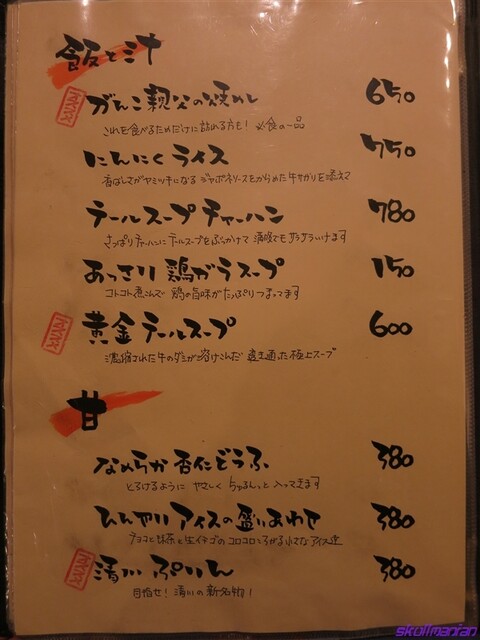 飯と汁
がんこ親父の焼めし 650
これを食べるためだけに訪れる方も! 必食の一品
にんにくライス 750
香ばしさがヤミツキになる ジャポネソースをからめた牛サガリを添えて
テールスープチャーハン 780
さっぱりチャーハンにテールスープをぶっかけて 満腹でもサラサラいけます
あっさり鶏ガラスープ 150
コトコト煮こんで 鶏の旨味がたっぷりつまってます
黄金テールスープ 600
濃縮された牛のダシが溶けこんだ 透き通った極上スープ
甘
なめらか杏仁どうふ 380
とろけるように やさしく ちゅるんっと 入ってきます
ひんやりアイスの盛りあわせ 380
チョコと抹茶と生イチゴのコロコロころがる小さなアイス達
清いぷりん 380
目指せ! 清いの新名物!
skullmanian